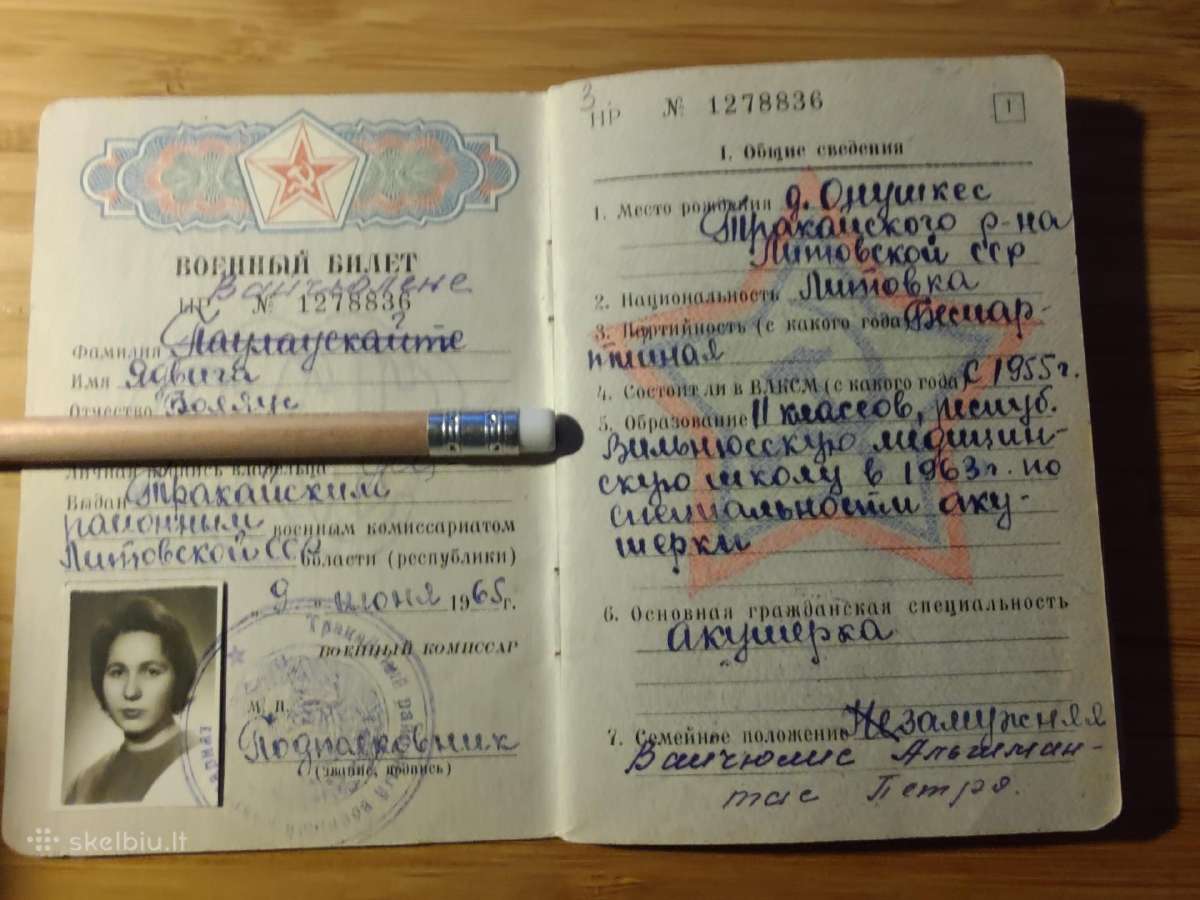 ВОЕННЫЙ БИЛЕТ
Вайчюлене
НР № 1278836
Фамилия Паулаускайте
Имя Ядвига
Отчество
Личная подпись владельца
Выдан Тракайским
районным военным комиссариатом
Литовской ССР области (республики)
„ 9 „ июня 1965 г.
ВОЕННЫЙ КОМИССАР
М. П.
Подполковник
(звание, подпись)
skelbiu.lt
3.
НР № 1278836
1
I. Общие сведения
1. Место рождения д. Онушкес
Тракайского р-на
Литовской сср
2. Национальность Литовка
3. Партийность (с какого года) Беспар-
тийная
4. Состоит ли в ВЛКСМ (с какого года) с 1955 г.
5. Образование 11 классов, респуб.
Вильнюсскую медицин-
скую школу в 1963 г. по
специальности аку-
шерки
6. Основная гражданская специальность
акушерка
7. Семейное положение Незамужняя
Вайчюлис Альгиман-
тас Петро.